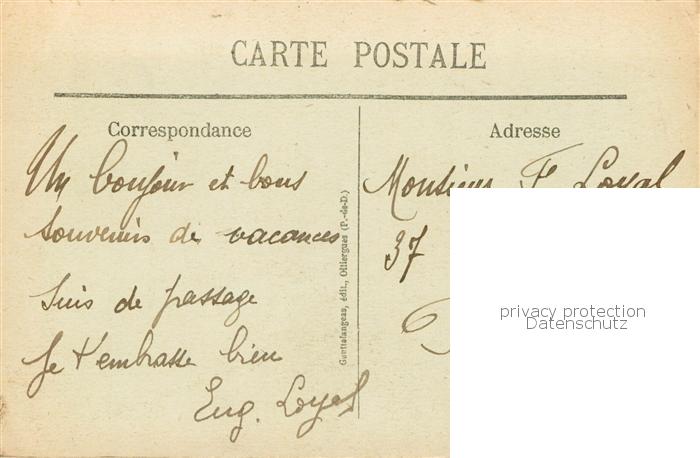 CARTE POSTALE
Correspondance
Un bonjour et bons
souvenirs de vacances
Suis de passage
Je t'embrasse bien
Eug. Loyal
édit., Olliergues (P.-de-D.)
Adresse
Monsieur F. Loyal
37
privacy protection
Datenschutz